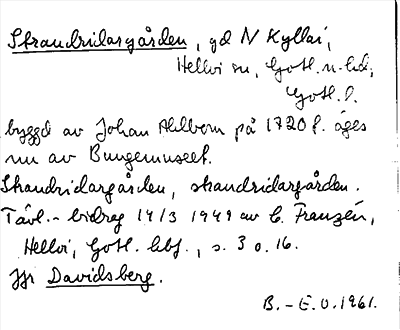 Strandridargården, gd N Kyllai,
Hellvi sn, Gotl. n. hd,
Gotl. l.
byggd av Johan Ahlbom på 1720 t. äges
nu av Bungemuseet.
Strandridargården, strandridargården.
Tävl.-bidrag 14/3 1949 av C. Franzén,
Hellvi, Gotl. , s. 3 o. 16.
Jfr Davidsberg.
B.-E.O. 1961.